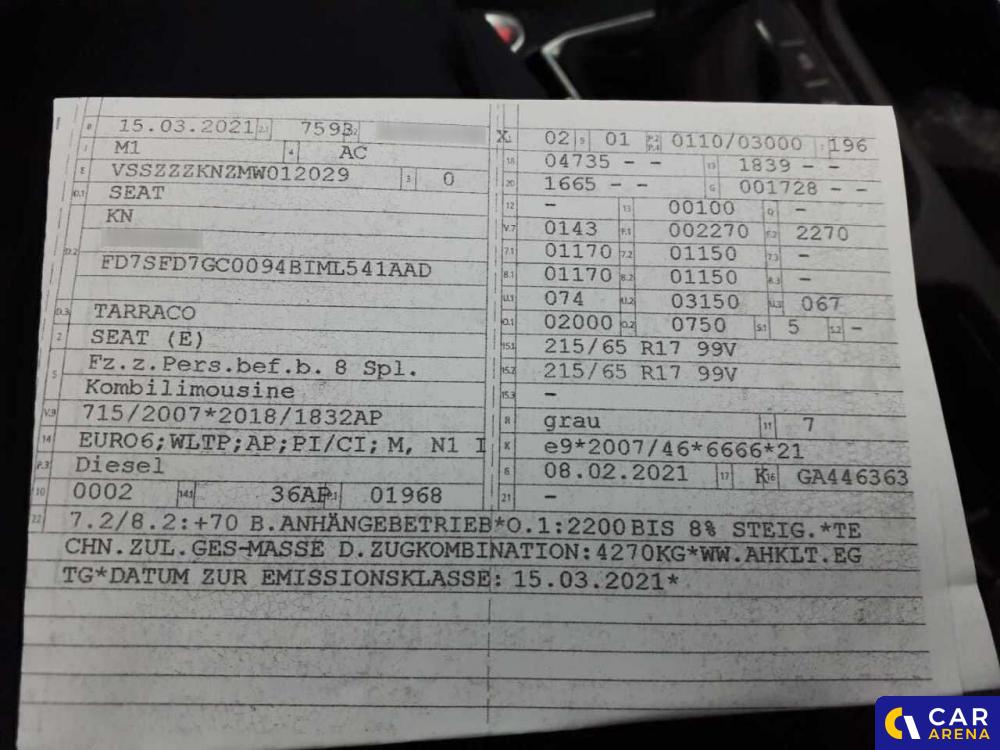 B 15.03.2021 2.1 7593 2.2
J M1 4 AC
E VSSZZZKNZMW012029 3 0
D.1 SEAT
KN
D.2
FD7SFD7GC0094BIML541AAD
D.3 TARRACO
2 SEAT (E)
5 Fz.z.Pers.bef.b. 8 Spl.
Kombilimousine
V.9 715/2007*2018/1832AP
14 EURO6;WLTP;AP;PI/CI; M, N1 I
P.3 Diesel
10 0002 14.1 36AP P.1 01968
X 02 9 01 P.2 P.4 0110/03000 T 196
18 04735 - - 19 1839 - -
20 1665 - - G 001728 - -
12 - 13 00100 Q -
V.7 0143 F.1 002270 F.2 2270
7.1 01170 7.2 01150 7.3 -
8.1 01170 8.2 01150 8.3 -
U.1 074 U.2 03150 U.3 067
O.1 02000 O.2 0750 S.1 5 S.2 -
15.1 215/65 R17 99V
15.2 215/65 R17 99V
15.3 -
R grau 11 7
K e9*2007/46*6666*21
6 08.02.2021 17 K 16 GA446363
21 -
22 7.2/8.2:+70 B.ANHÄNGEBETRIEB*O.1:2200 BIS 8% STEIG.*TE
CHN.ZUL.GES-MASSE D.ZUGKOMBINATION:4270KG*WW.AHKLT.EG
TG*DATUM ZUR EMISSIONSKLASSE: 15.03.2021*
CAR
ARENA